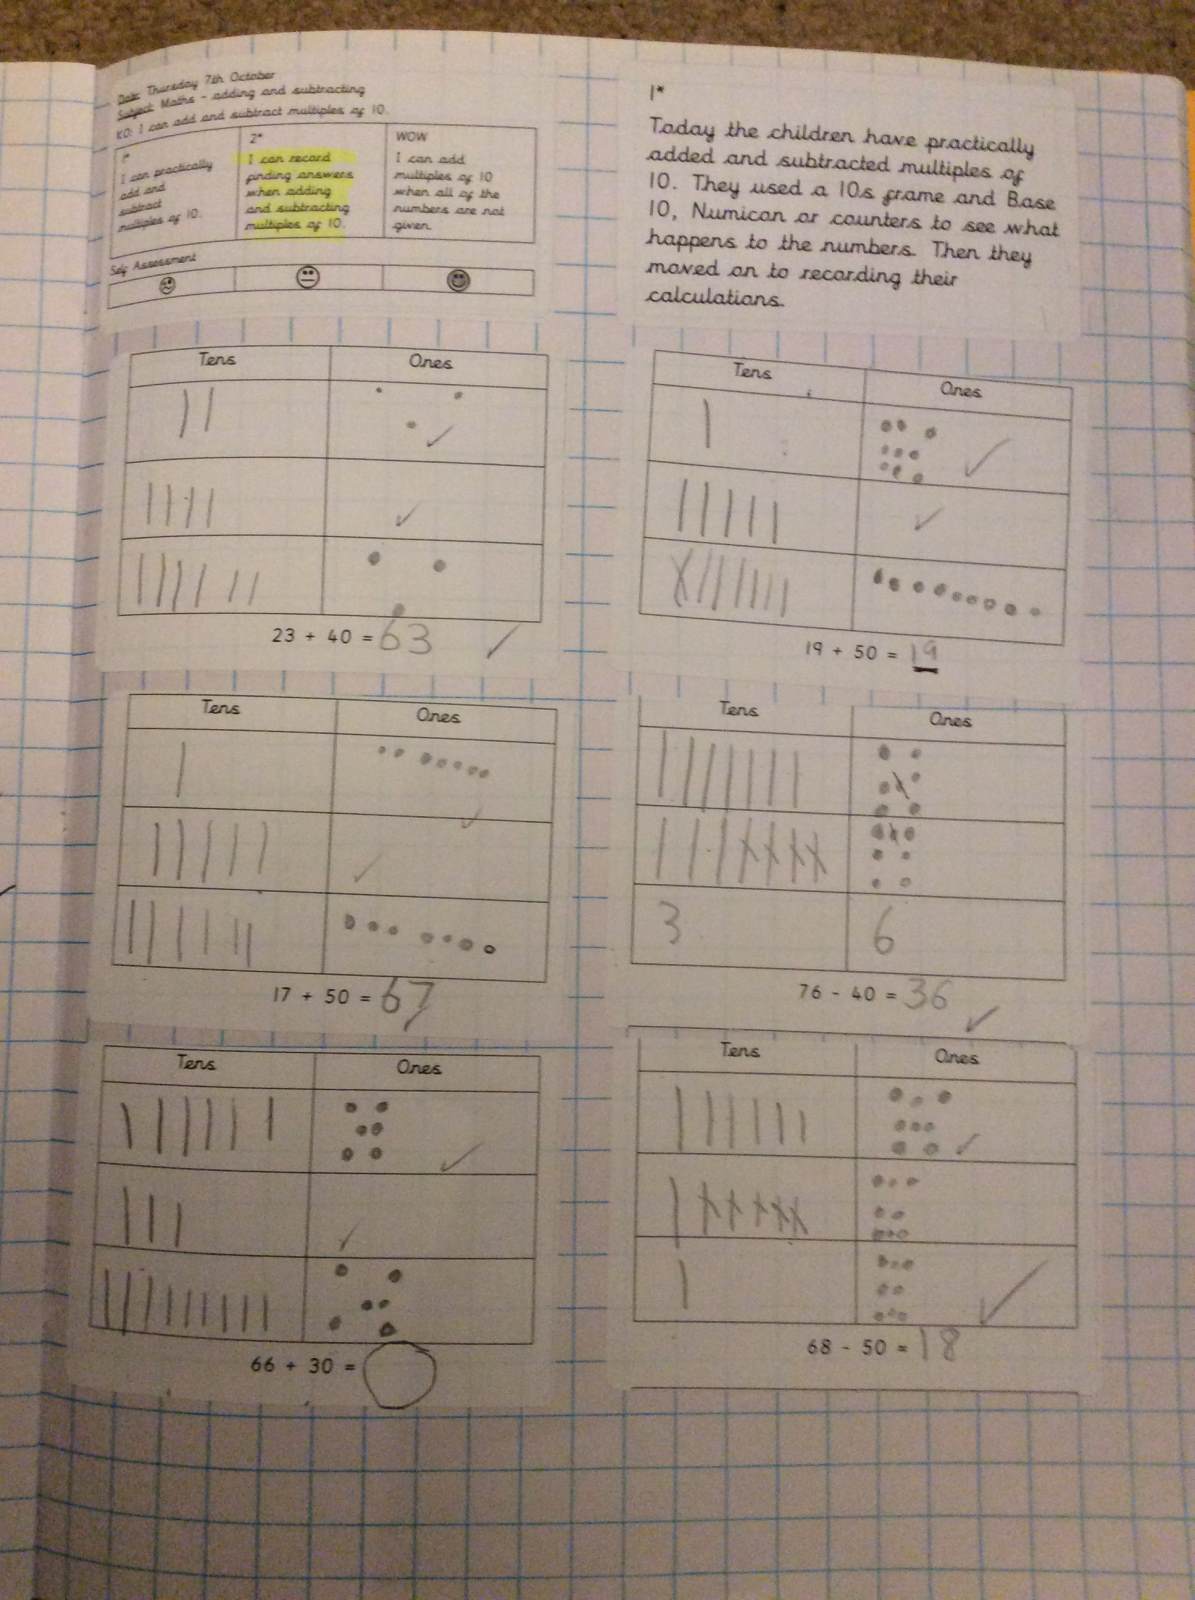 Date: Thursday 7th October
Subject: Maths - adding and subtracting
KO: I can add and subtract multiples of 10.
1*
I can practically
add and
subtract
multiples of 10.
2*
I can record
finding answers
when adding
and subtracting
multiples of 10.
WOW
I can add
multiples of 10
when all of the
numbers are not
given.
Self Assessment
1*
Today the children have practically
added and subtracted multiples of
10. They used a 10s frame and Base
10, Numicon or counters to see what
happens to the numbers. Then they
moved on to recording their
calculations.
Tens Ones
23 + 40 = 63
Tens Ones
19 + 50 = 19
Tens Ones
17 + 50 = 67
Tens Ones
3 6
76 - 40 = 36
Tens Ones
66 + 30 =
Tens Ones
68 - 50 = 18